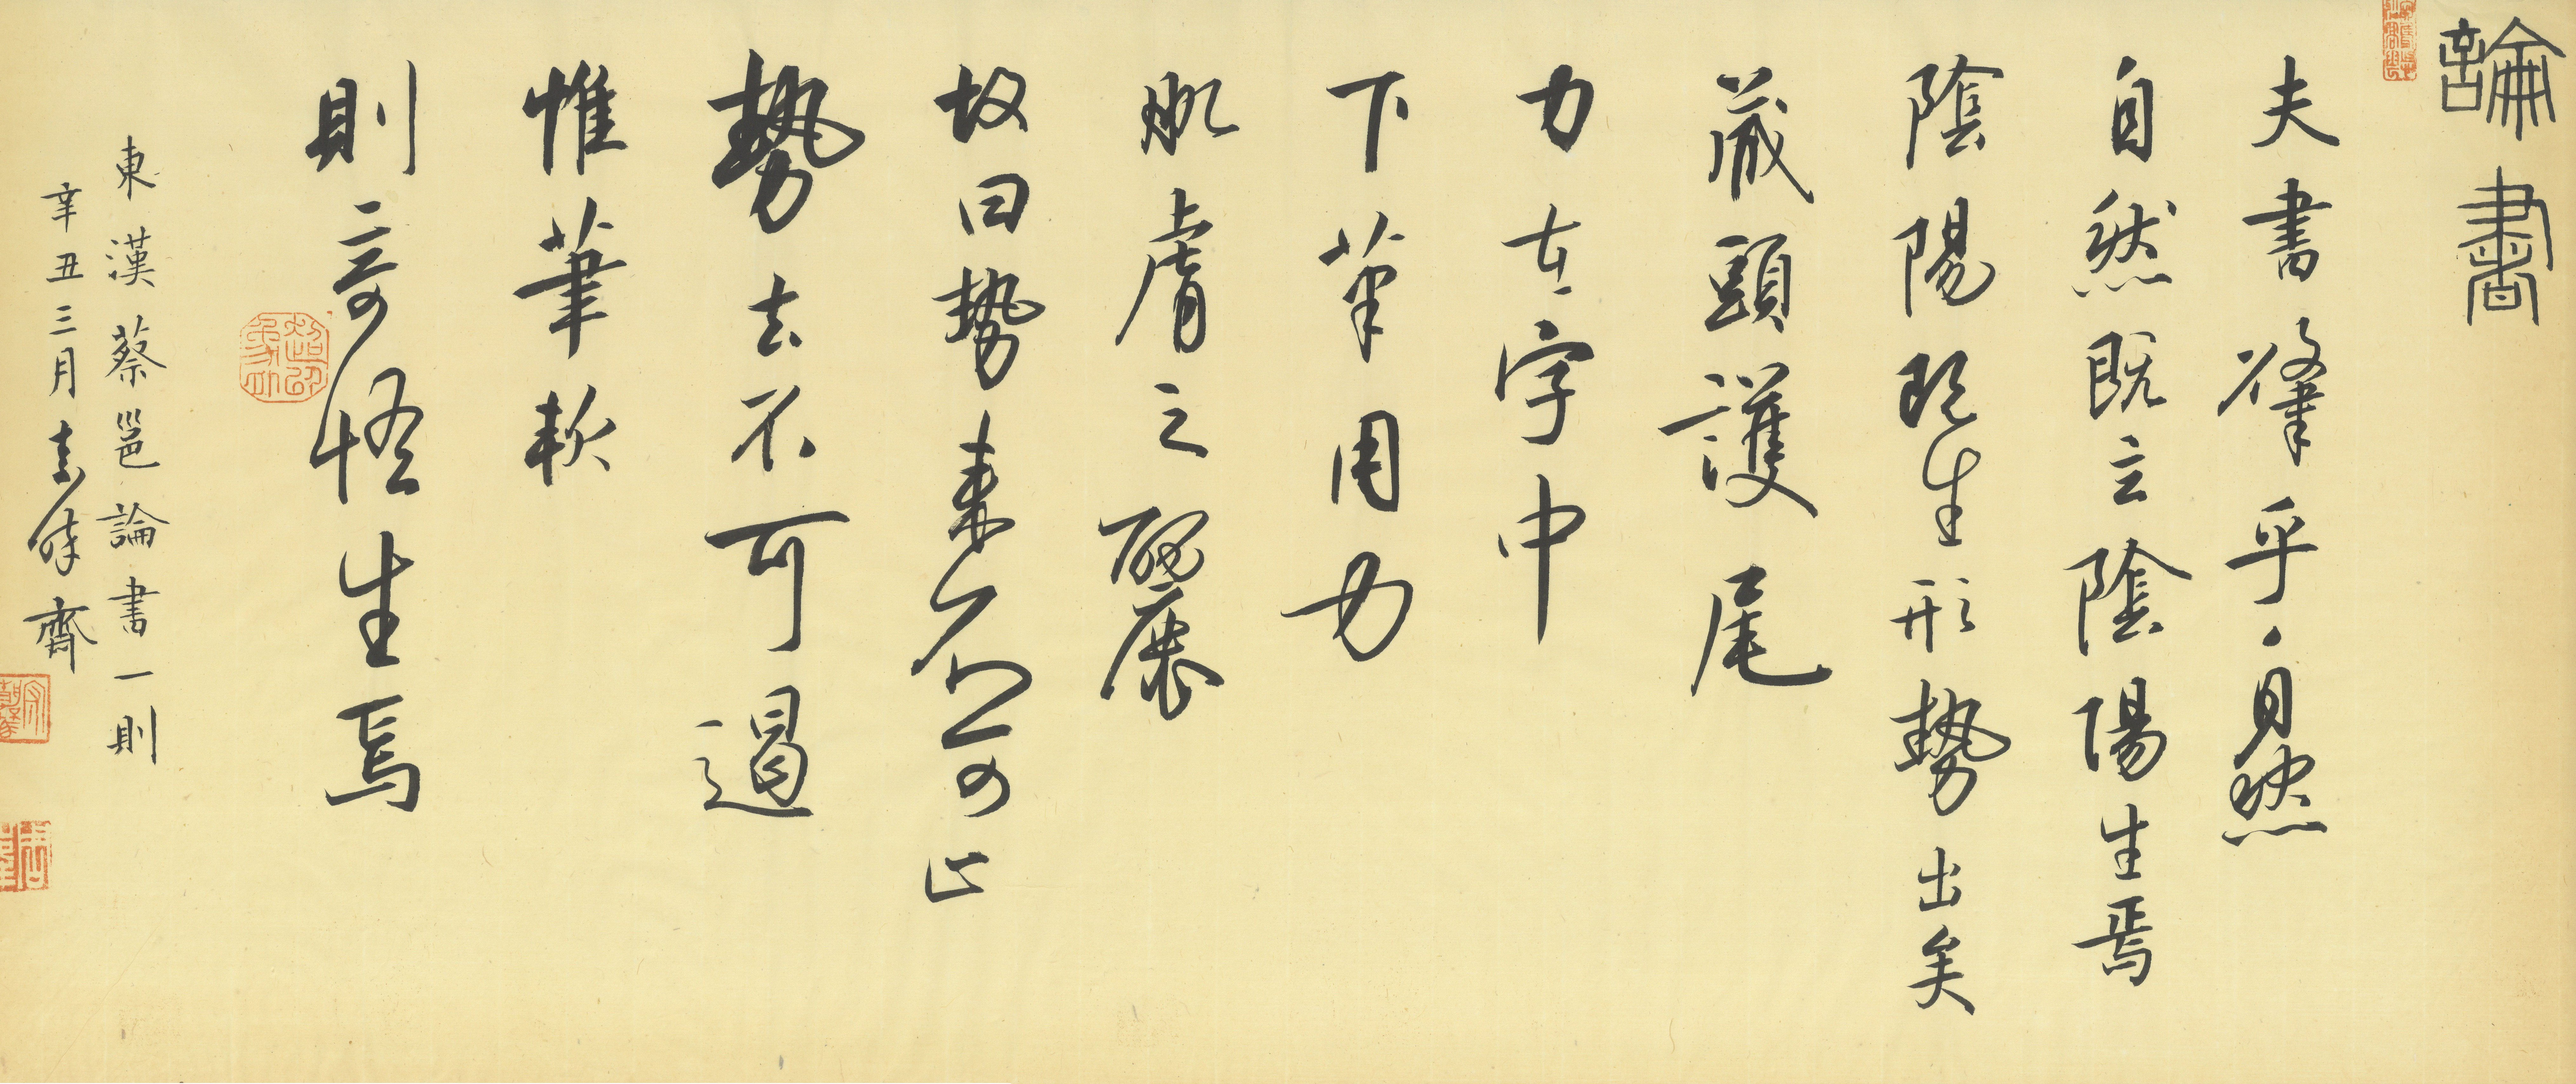 論書
夫書肇乎自然
自然既立陰陽生焉
陰陽既生形勢出矣
藏頭護尾
力在字中
下筆用力
肌膚之麗
故曰勢來不可止
勢去不可遏
惟筆軟
則奇怪生焉
東漢蔡邕論書一則
辛丑三月 齋